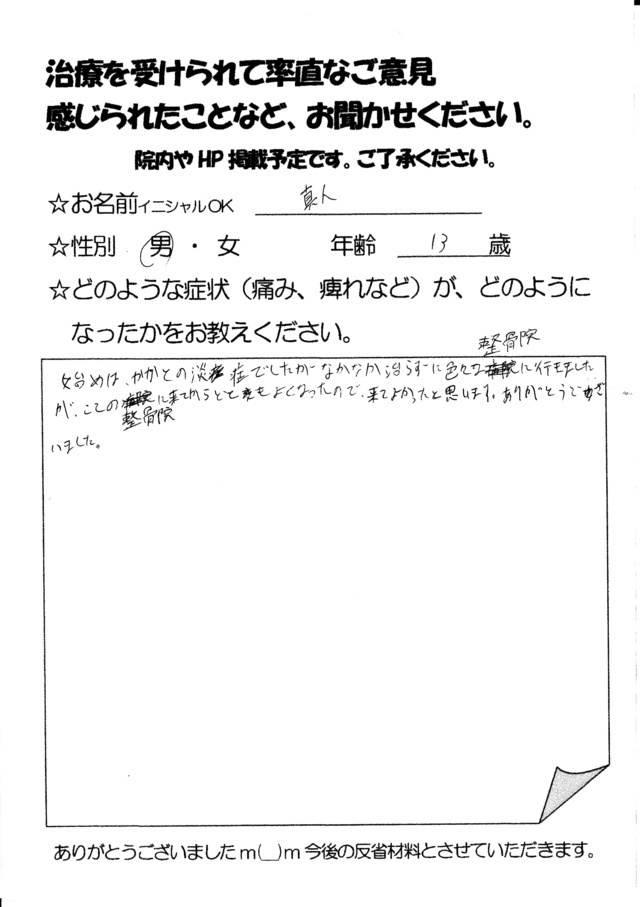 治療を受けられて率直なご意見
感じられたことなど、お聞かせください。
院内やHP掲載予定です。ご了承ください。
☆お名前イニシャルOK 真人
☆性別 男・女 年齢 13 歳
☆どのような症状（痛み、痺れなど）が、どのように
なったかをお教えください。
整骨院
始めは、かかとの炎症でしたがなかなか治らずに色々な病院に行きました
が、ここの病院に来てからとてもよくなったので、来てよかったと思います。ありがとうござ
整骨院
いました。
ありがとうございましたm(__)m今後の反省材料とさせていただきます。